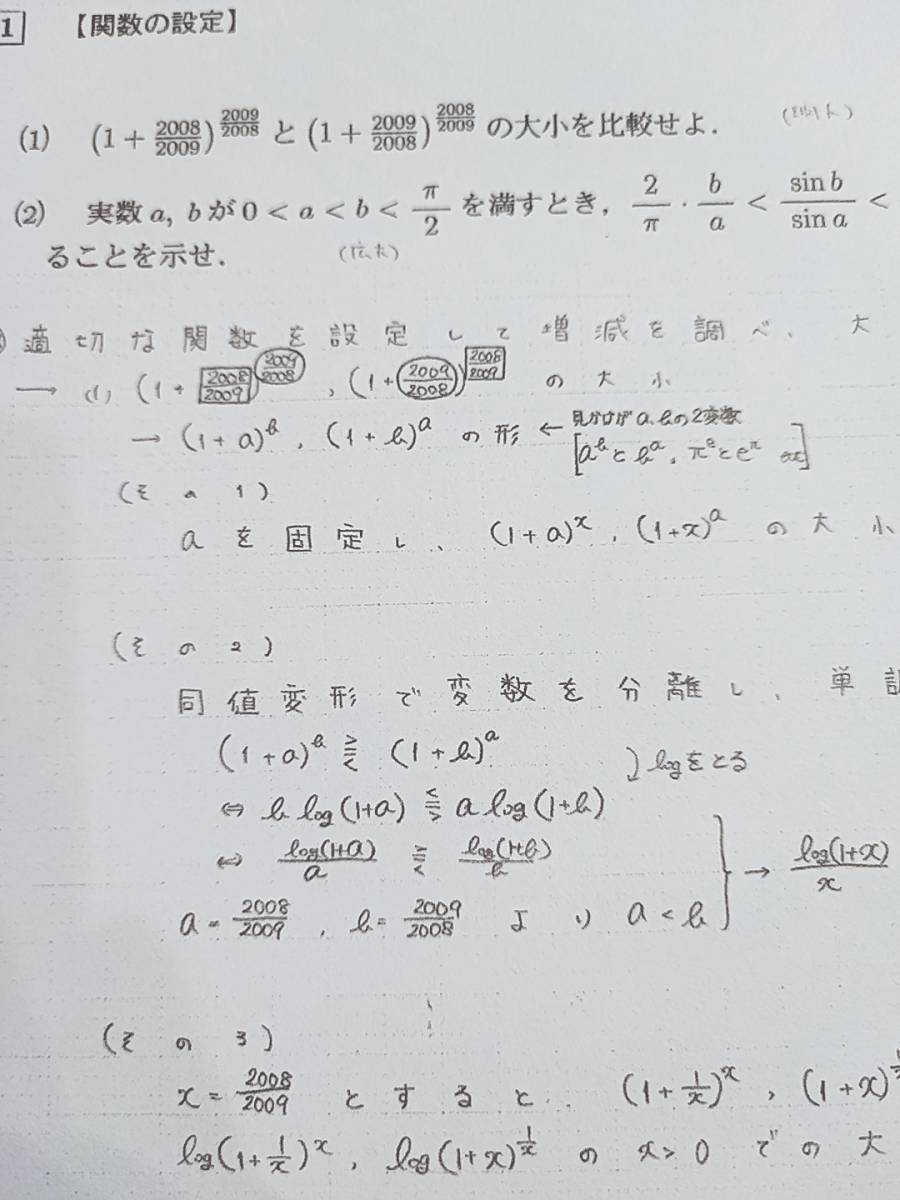 1 【関数の設定】
(1) (1 + 2008/2009)^(2009/2008) と (1 + 2009/2008)^(2008/2009) の大小を比較せよ.
(2) 実数 a, b が 0 < a < b < π/2 を満たすとき, 2/π · b/a < sin b/sin a <
ることを示せ. (広大)
適切な関数を設定して増減を調べ、大
→ (1) (1 + 2008/2009)^(2009/2008) , (1 + 2009/2008)^(2008/2009) の大小
→ (1+a)^b , (1+b)^a の形 ← 見かけが a, b の2変数
[a^b と b^a , π^e と e^π etc]
(その1)
a を固定し、(1+a)^x , (1+x)^a の大小
(その2)
同値変形で変数を分離し、単調
(1+a)^b ≧< (1+b)^a
logをとる
⇔ b log(1+a) ≦> a log(1+b)
⇔ log(1+a)/a ≧< log(1+b)/b → log(1+x)/x
a = 2008/2009 , b = 2009/2008 より a < b
(その3)
x = 2008/2009 とすると、(1+1/x)^x , (1+x)^(1/x)
log(1+1/x)^x , log(1+x)^(1/x) の x>0 での大